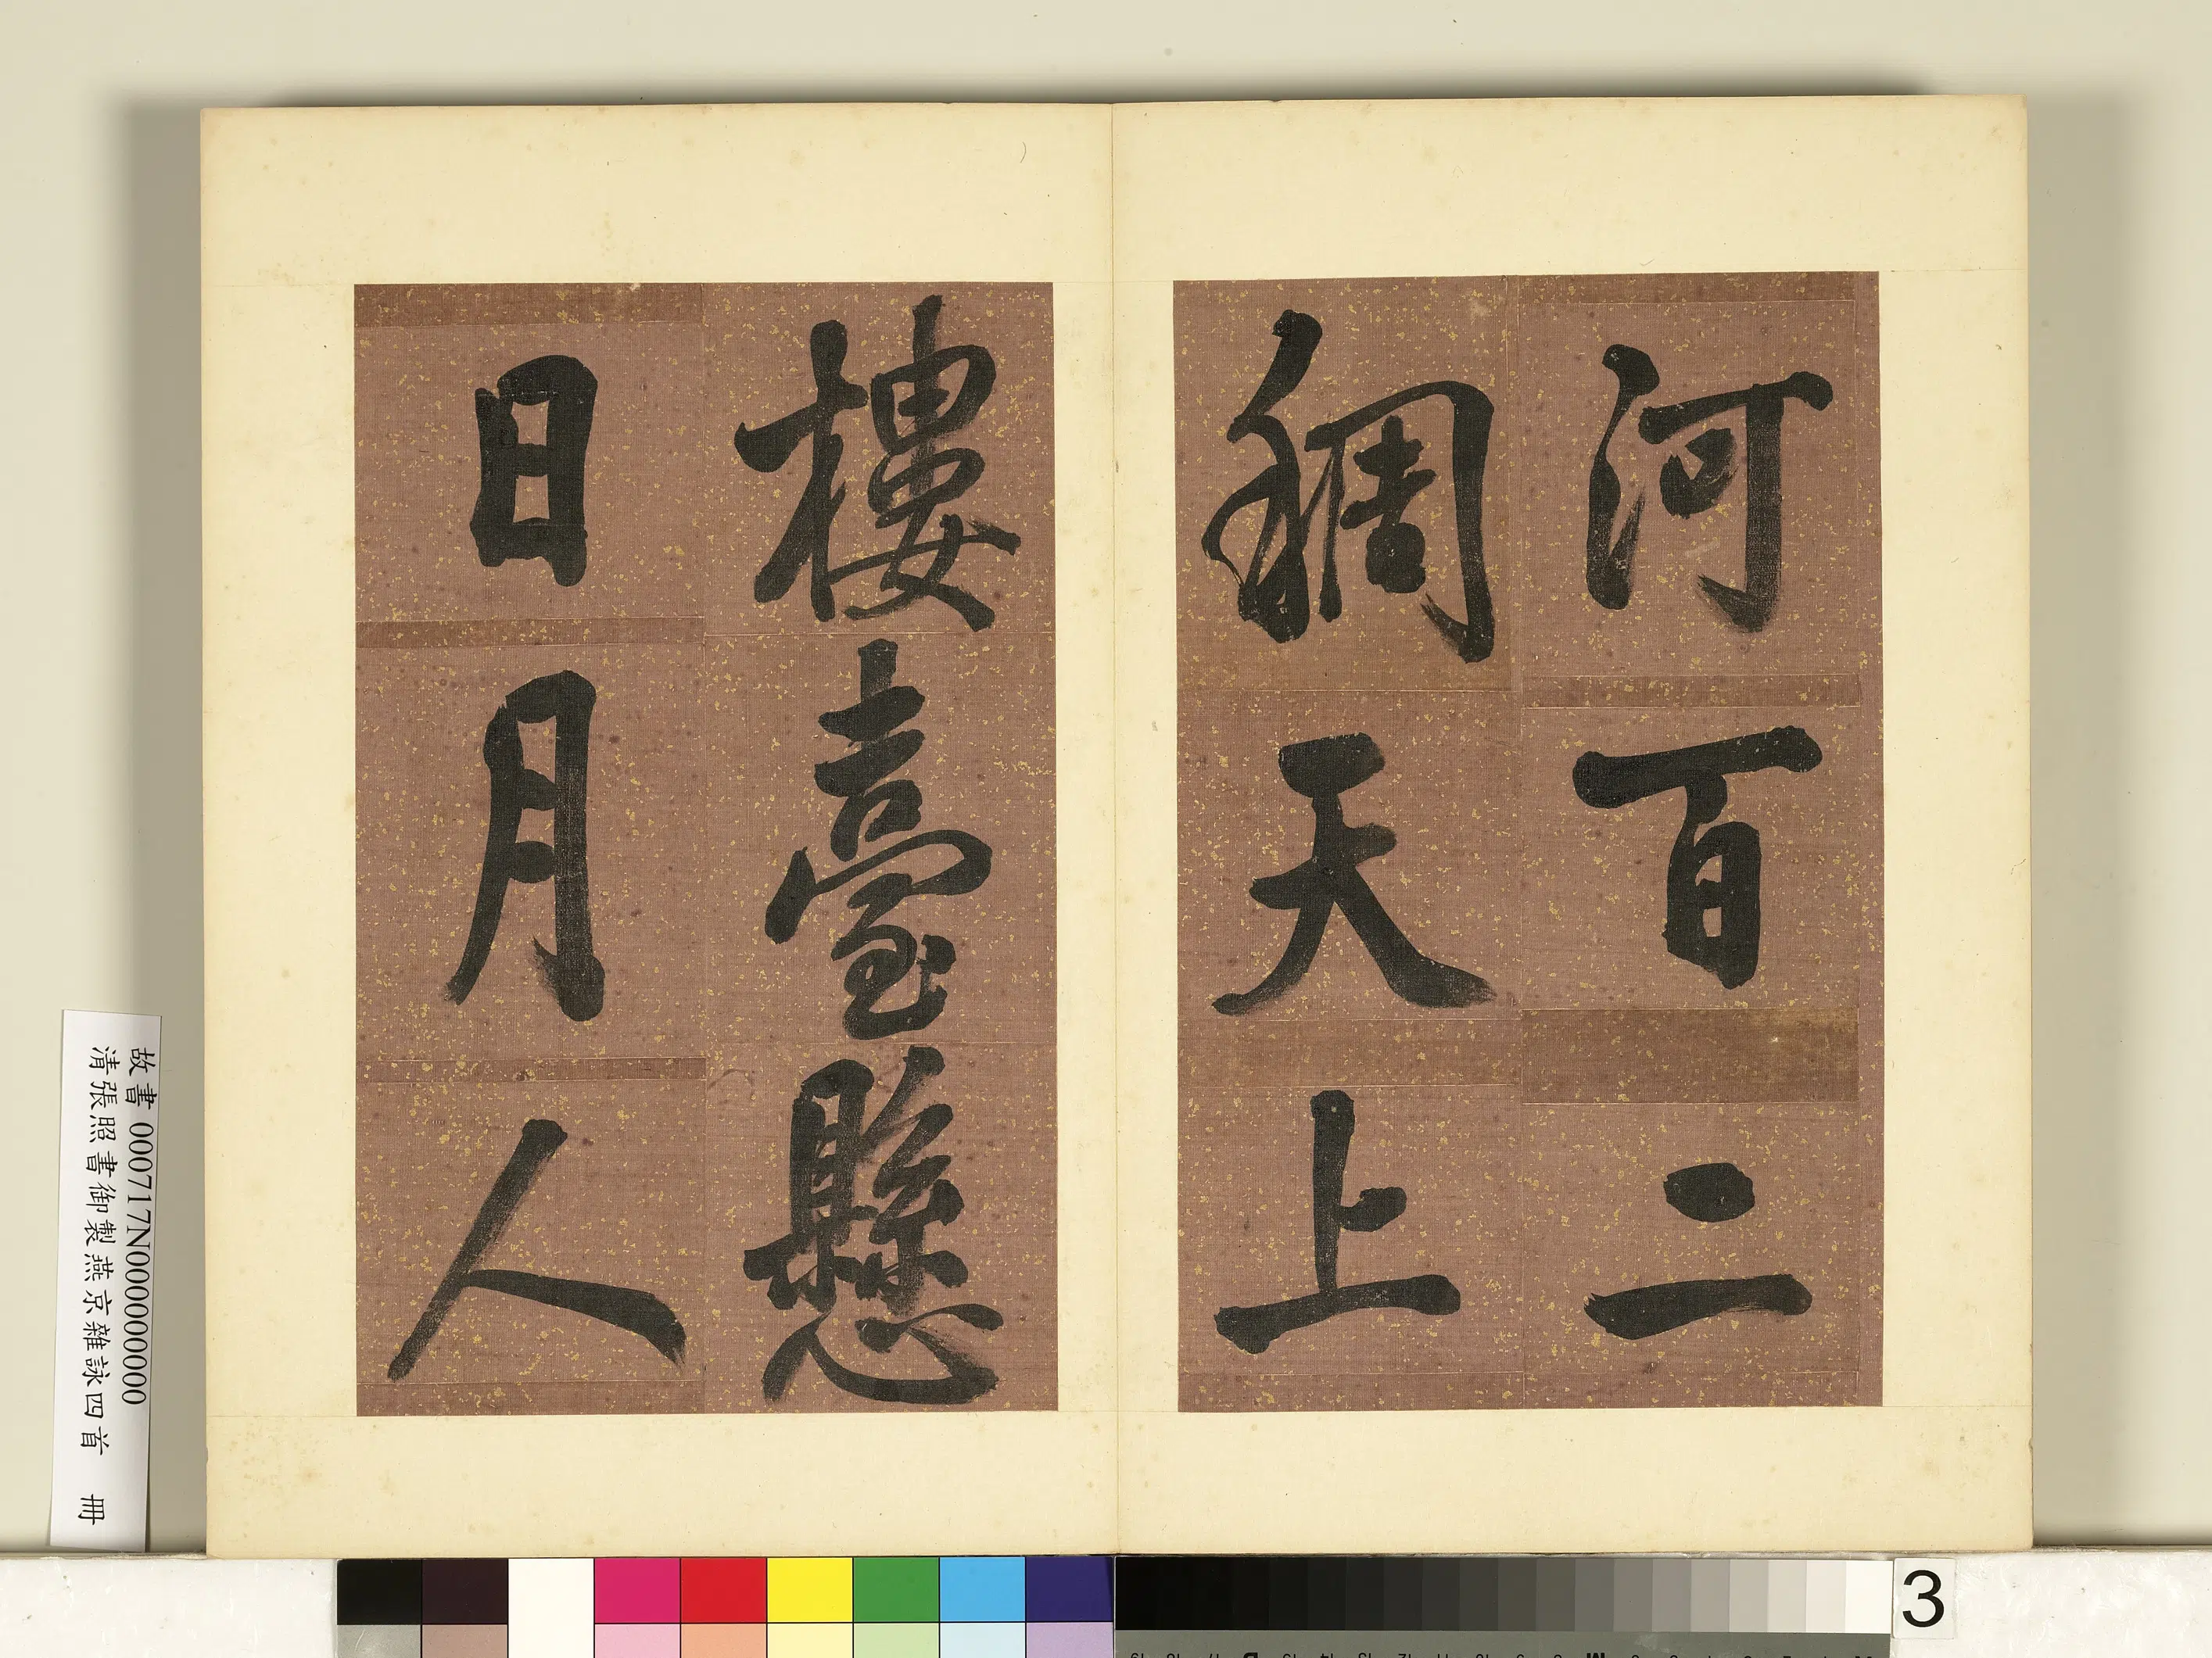 河百二
稠天上
樓臺懸
日月人
故書000717N000000000
清張照書御製燕京雜詠四首 冊
3